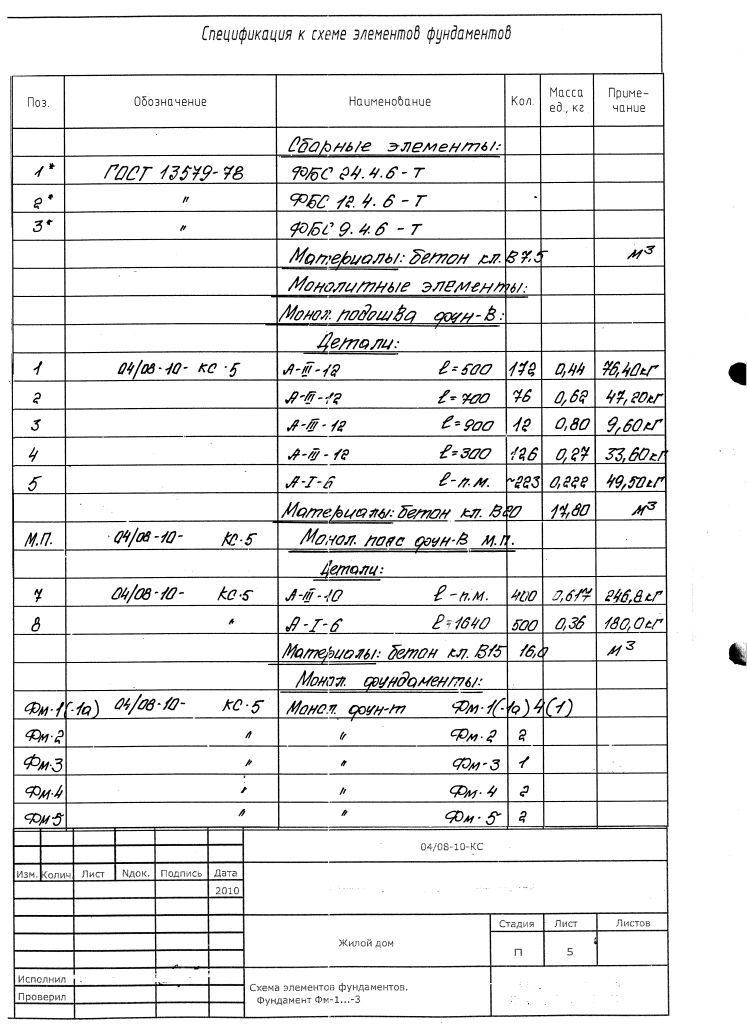 Спецификация к схеме элементов фундаментов
Поз. Обозначение Наименование Кол. Масса ед., кг Приме-чание
Сборные элементы:
1* ГОСТ 13579-78 ФБС 24.4.6-Т
2* " ФБС 12.4.6-Т
3* " ФБС 9.4.6-Т
Материалы: бетон кл. В7,5 м3
Монолитные элементы:
Монол. подошва фун-в:
Детали:
1 04/08-10-КС-5 А-III-12 ℓ=500 172 0,44 76,40кг
2 А-III-12 ℓ=700 76 0,62 47,20кг
3 А-III-12 ℓ=900 12 0,80 9,60кг
4 А-III-12 ℓ=300 126 0,27 33,60кг
5 А-I-6 ℓ-п.м. ~223 0,222 49,50кг
Материалы: бетон кл. В20 17,80 м3
М.П. 04/08-10- КС-5 Монол. пояс фун-в М.П.
Детали:
7 04/08-10- КС-5 А-III-10 ℓ-п.м. 400 0,617 246,8кг
8 " А-I-6 ℓ=1640 500 0,36 180,0кг
Материалы: бетон кл. В15 16,0 м3
Монол. фундаменты:
Фм-1(-1а) 04/08-10- КС-5 Монол. фун-т Фм-1(-1а) 4(1)
Фм-2 " " Фм-2 2
Фм-3 " " Фм-3 1
Фм-4 " " Фм-4 2
Фм-5 " " Фм-5 2
04/08-10-КС
Изм. Колич Лист Nдок. Подпись Дата
2010
Жилой дом
Стадия Лист Листов
П 5
Исполнил
Проверил
Схема элементов фундаментов.
Фундамент Фм-1...-3